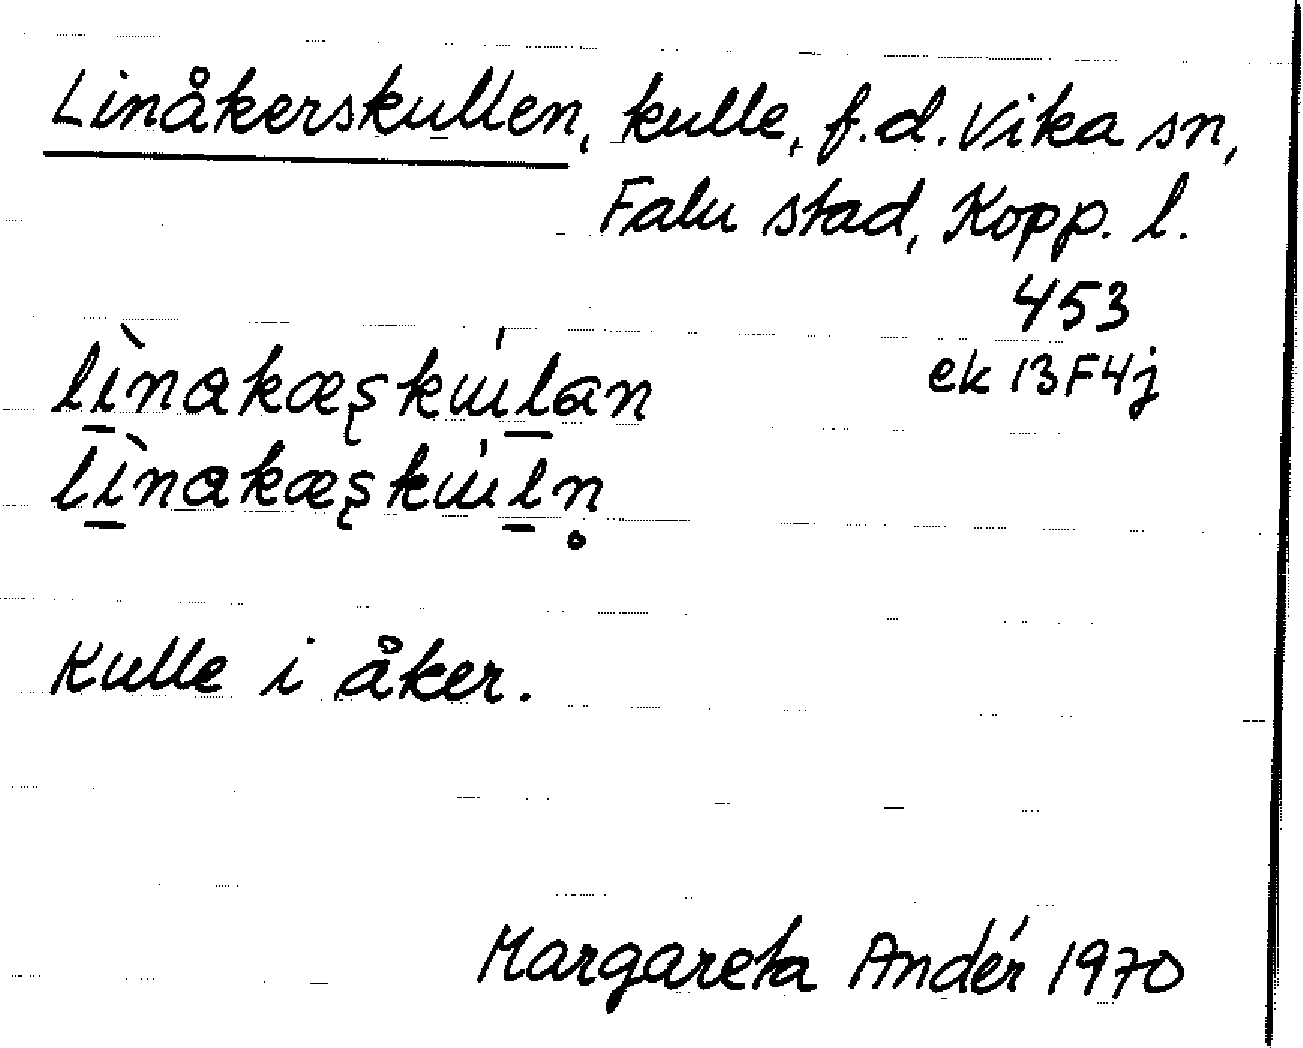 Linåkerskullen, kulle, f.d. Vika sn,
Falu stad, Kopp. l.
453
ek 13F4j
lìnakæʂkɯ́lan
lìnakæʂkɯ́ln̥
Kulle i åker.
Margareta Andér 1970